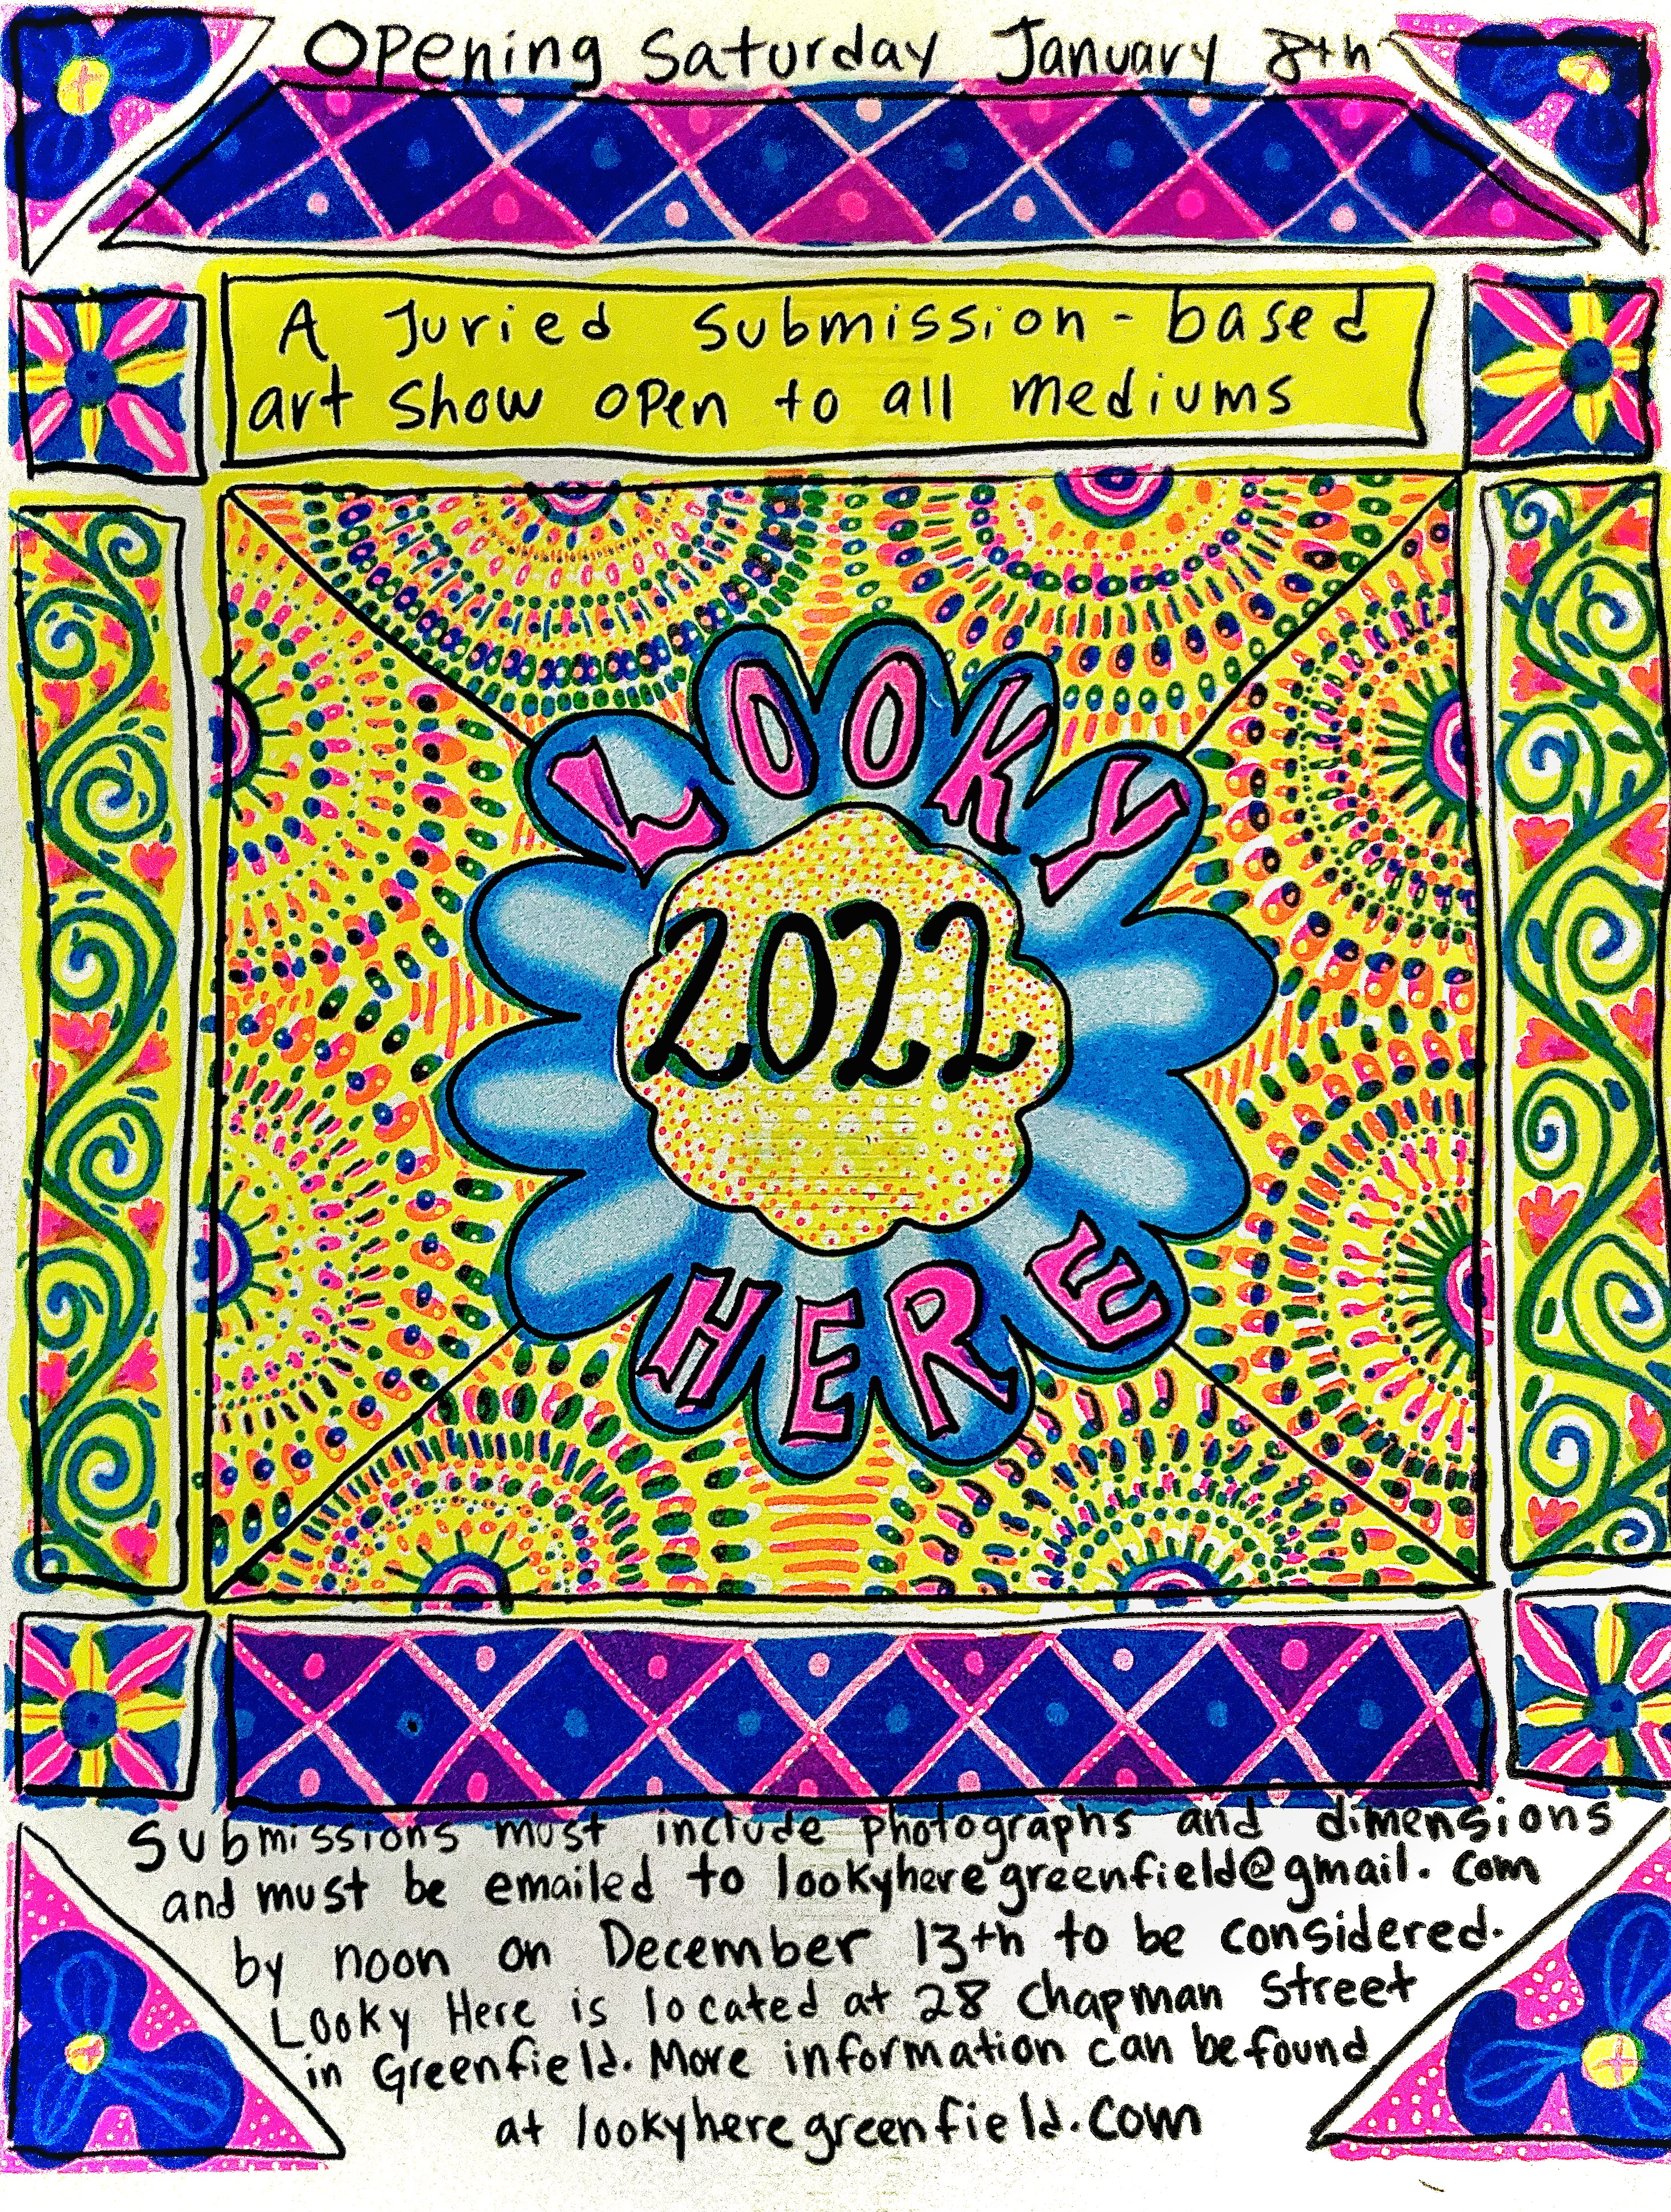 Opening Saturday January 8th
A Juried submission-based
art show open to all mediums
LOOKY
2022
HERE
Submissions must include photographs and dimensions
and must be emailed to lookyheregreenfield@gmail.com
by noon on December 13th to be considered.
Looky Here is located at 28 Chapman Street
in Greenfield. More information can be found
at lookyheregreenfield.com